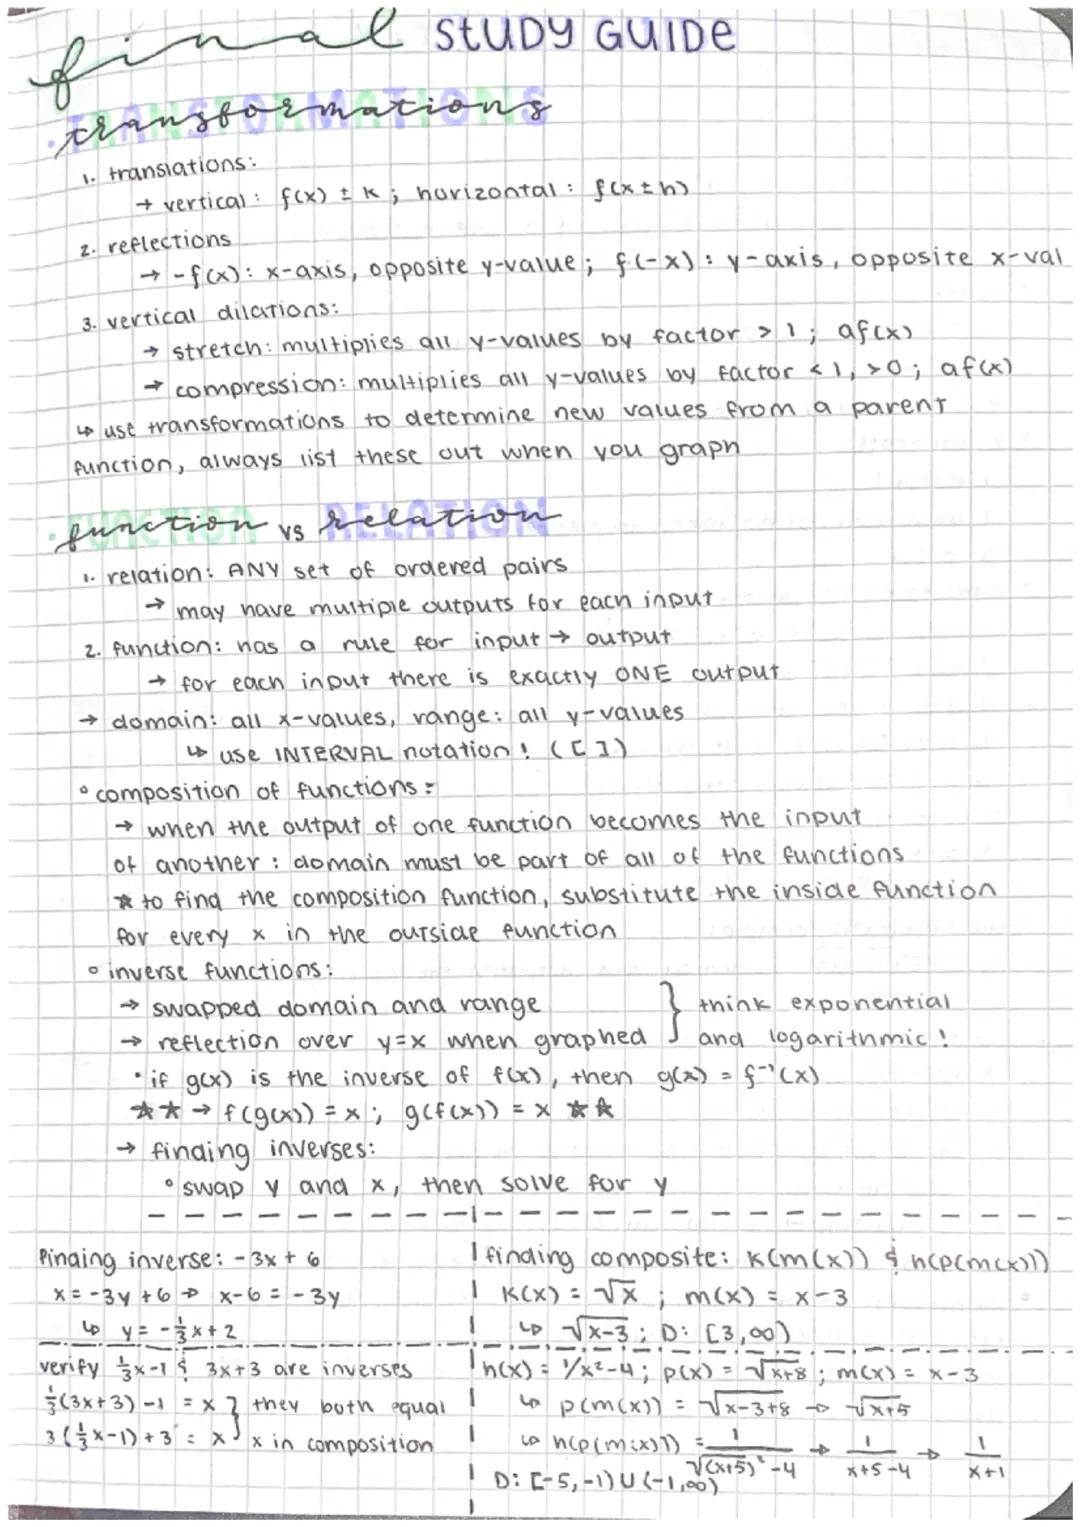 final STUDY GUIDE
· transformations
1. translations:
→ vertical: f(x) ± k; horizontal: f(x±h)
2. reflections
→ -f(x): x-axis, opposite y-value; f(-x): y-axis, opposite x-val
3. vertical dilations:
→ stretch: multiplies all y-values by factor > 1; af(x)
→ compression: multiplies all y-values by factor < 1, >0; af(x)
↳ use transformations to determine new values from a parent
function, always list these out when you graph
· function vs relation
1. relation: ANY set of ordered pairs
→ may have multiple outputs for each input
2. function: has a rule for input → output
→ for each input there is exactly ONE output
→ domain: all x-values, range: all y-values
↳ use INTERVAL notation! ( [ ] )
° composition of functions:
→ when the output of one function becomes the input
of another: domain must be part of all of the functions
☆ to find the composition function, substitute the inside function
for every x in the outside function
° inverse functions:
→ swapped domain and range } think exponential
→ reflection over y=x when graphed } and logarithmic!
• if g(x) is the inverse of f(x), then g(x) = f⁻¹(x)
☆☆ → f(g(x)) = x; g(f(x)) = x ☆☆
→ finding inverses:
° swap y and x, then solve for y
finding inverse: -3x + 6
x = -3y + 6 → x-6 = -3y
↳ y = -⅓x + 2
verify ⅓x-1 & 3x+3 are inverses
⅓(3x+3)-1 = x } they both equal
3(⅓x-1)+3 = x } x in composition
finding composite: k(m(x)) & h(p(m(x)))
k(x) = √x ; m(x) = x-3
↳ √x-3 ; D: [3,∞)
h(x) = 1/x²-4; p(x) = √x+8 ; m(x) = x-3
↳ p(m(x)) = √x-3+8 → √x+5
↳ h(p(m(x))) = 1/√(x+5)²-4 → 1/x+5-4 → 1/x+1
D: [-5,-1) U (-1,∞)